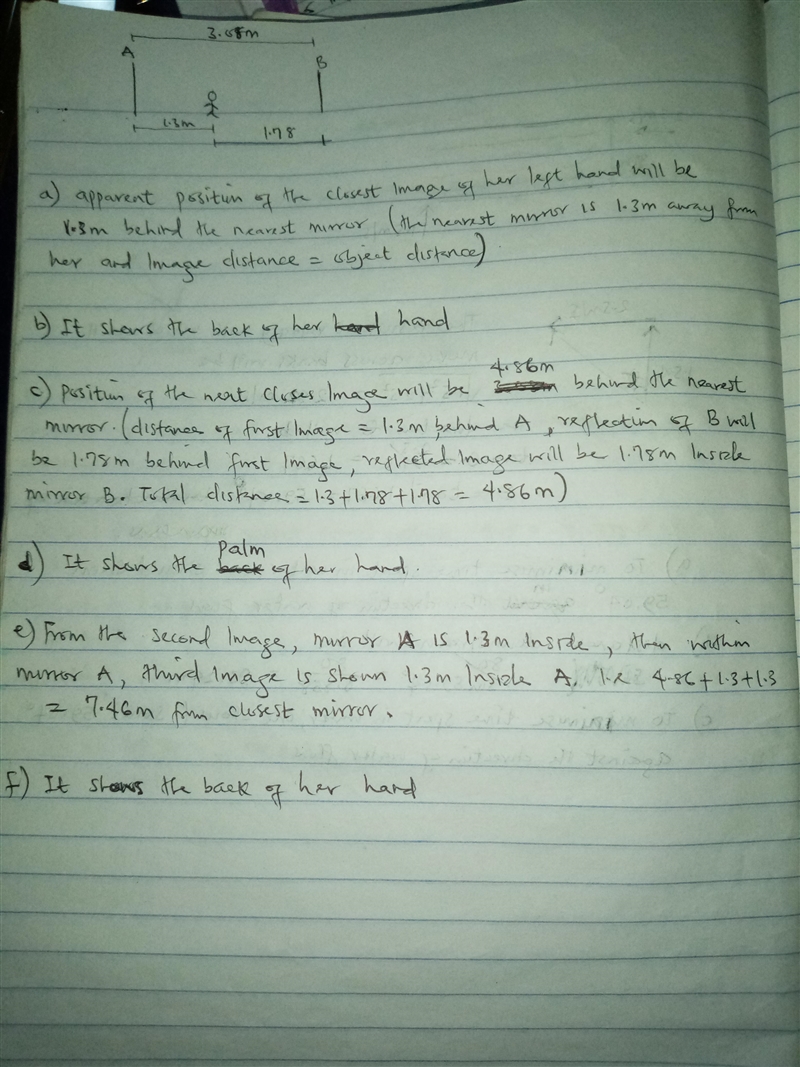 3.08m
A
B
1.3m
1.78
a) apparent position of the closest Image of her left hand will be
1.3m behind the nearest mirror (the nearest mirror is 1.3m away from
her and Image distance = object distance)
b) It shows the back of her hand hand
c) Position of the next closes Image will be 4.86m behind the nearest
mirror. (distance of first Image = 1.3m behind A, reflection of B will
be 1.78m behind first Image, reflected Image will be 1.78m Inside
mirror B. Total distance = 1.3+1.78+1.78 = 4.86m)
d) It shows the back palm of her hand.
e) From the second Image, mirror A is 1.3m Inside, then within
mirror A, third Image is shown 1.3m Inside A. I.e 4.86+1.3+1.3
= 7.46m from closest mirror.
f) It shows the back of her hand